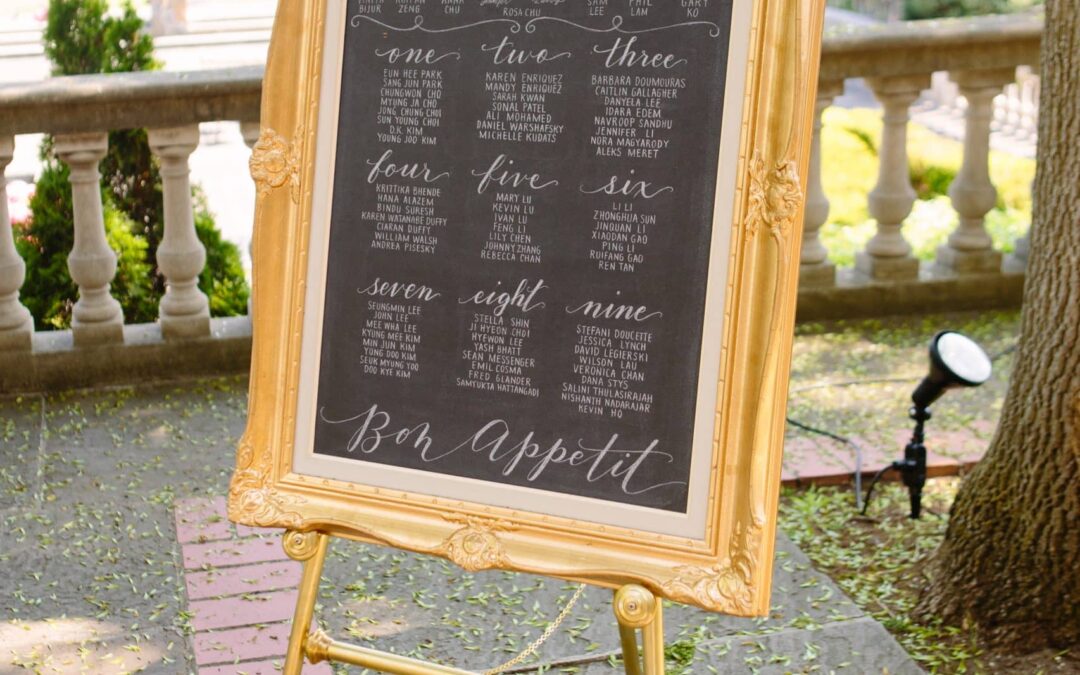 BIJUR ZENG CHU ROSA CHU LEE LAM KO
one two three
EUN HEE PARK
SANG JUN PARK
CHUNGWON CHO
MYUNG JA CHO
JONG CHUNG CHOI
SUN YOUNG CHOI
D.K. KIM
YOUNG JOO KIM
KAREN ENRIQUEZ
MANDY ENRIQUEZ
SARAH KWAN
SONAL PATEL
ALI MOHAMED
DANIEL WARSHAFSKY
MICHELLE KUDATS
BARBARA DOUMOURAS
CAITLIN GALLAGHER
DANYELA LEE
IDARA EDEM
NAVROOP SANDHU
JENNIFER LI
NORA MAGYARODY
ALEKS MERET
four five six
KRITTIKA BHENDE
HANA ALAZEM
BINDU SURESH
KAREN WATANABE DUFFY
CIARAN DUFFY
WILLIAM WALSH
ANDREA PISESKY
MARY LU
KEVIN LU
IVAN LU
FENG LI
WILLY CHEN
JOHNNY ZHANG
REBECCA CHAN
LI LI
ZHONGHUA SUN
JINQUAN LI
XIAODAN GAO
PING LI
RUIFANG GAO
REN TAN
seven eight nine
SEUNGMIN LEE
JOHN LEE
MEE WHA LEE
KYUNG MEE KIM
MIN JUN KIM
YONG DOO KIM
SEUK MYUNG YOO
DOO KYE KIM
STELLA SHIN
JI HYEON CHOI
HYEWON LEE
YASH BHATT
SEAN MESSENGER
EMIL COSMA
FRED GLANDER
SAMYUKTA HATTANGADI
STEFANI DOUCETTE
JESSICA LYNCH
DAVID LEGIERSKI
WILSON LAU
VERONICA CHAN
DANA STYS
SALINI THULASIRAJAH
NISHANTH NADARAJAR
KEVIN HO
Bon Appetit